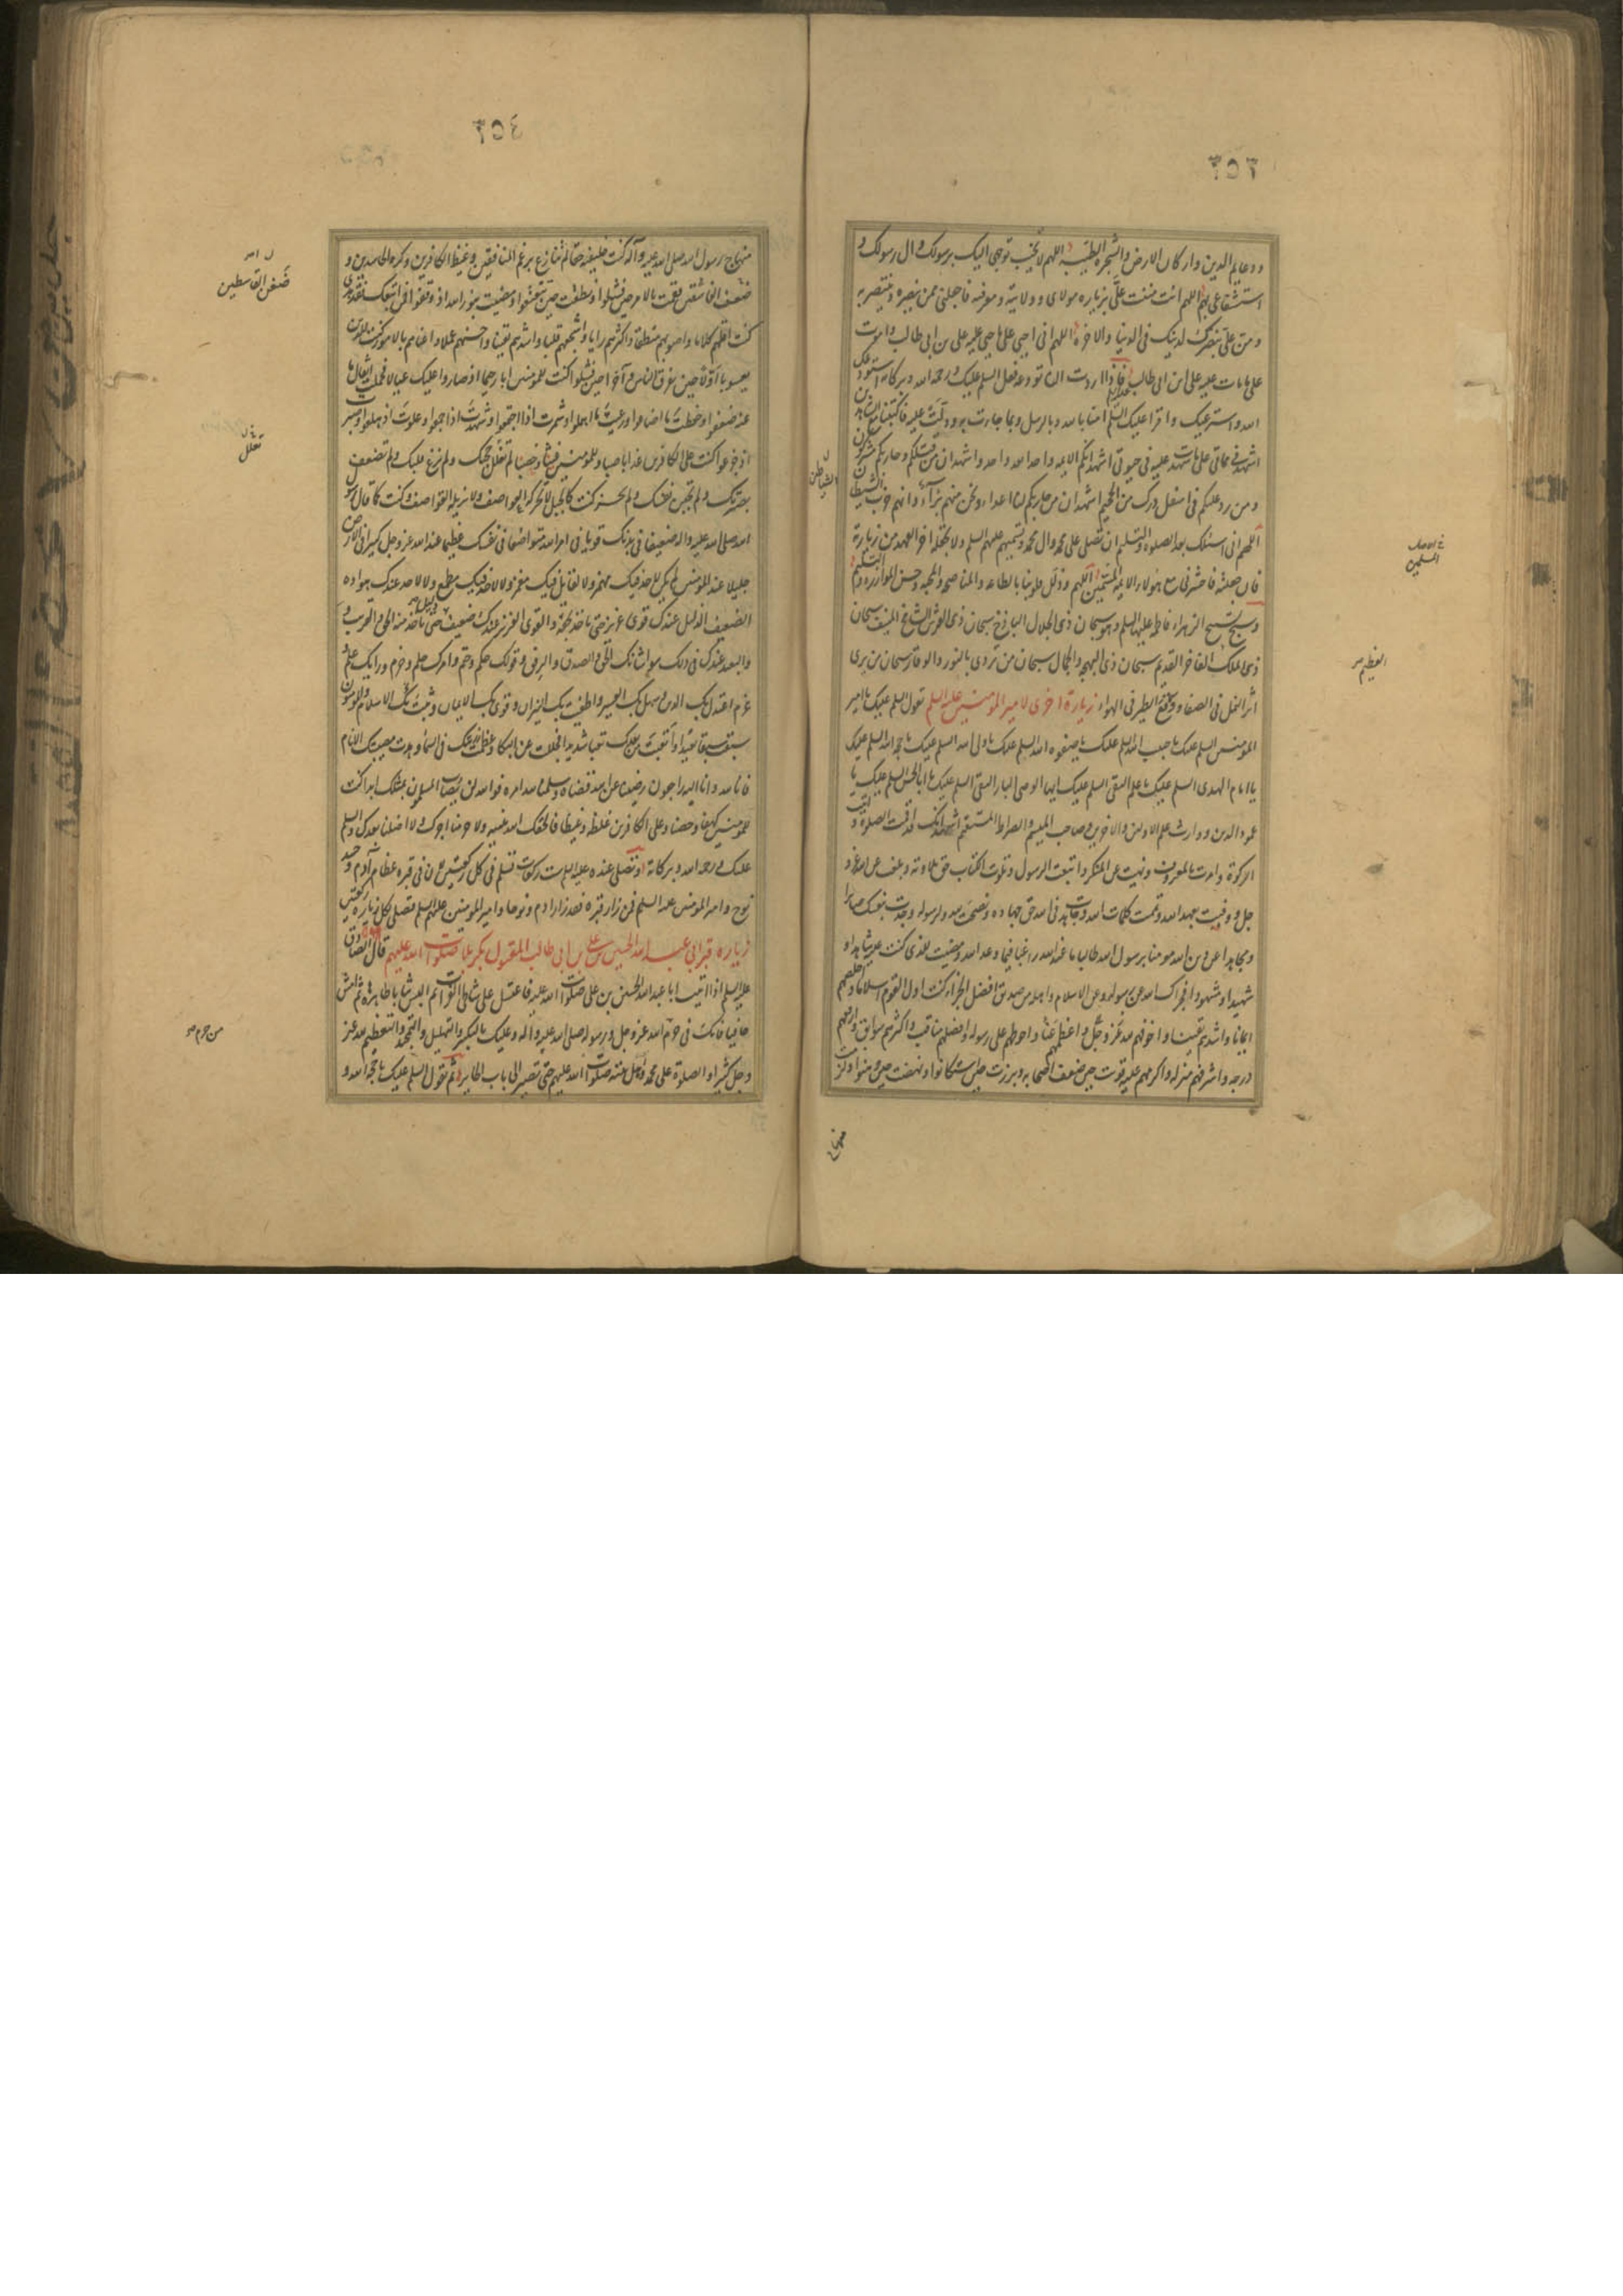 ٣٥٣
ودعايم الدين واركان الارض والشجرة الطيبة اللهم لا تخيب توجهي اليك برسولك وال رسولك و
استشفاعي بهم اللهم انت مننت علي بزيارة مولاي وولايته ومعرفته فاجعلني ممن ينصره وينتصر به
ومن علي بنصرك لدينك في الدنيا والاخرة اللهم اني احيى على ما حيي عليه علي بن ابي طالب واموت
على ما مات عليه علي ابن ابي طالب فاذا اردت ان تودعه فقل السلم عليك ورحمة الله وبركاته استودعك
الله واسترعيك واقرا عليك السلم امنا بالله وبالرسل وبما جاءت به ودلت عليه فاكتبنا مع الشاهدين
اشهد في مماتي على ما شهدت عليه في حيوتي اشهد انكم الايمة واحدا بعد واحد واشهد ان من قتلكم وحاربكم مشركون
ومن رد عليكم في اسفل درك من الجحيم اشهد ان من حاربكم لنا اعداء ونحن منهم برآء وانهم حزب الشيطان
اللهم اني اسئلك بعد الصلوة والتسليم ان تصلي على محمد وال محمد وتسميهم عليهم السلم ولا تجعله اخر العهد من زيارته
فان جعلته فاحشرني مع هولاء الايمة المسمين اللهم وذلل قلوبنا بالطاعة والمناصحة والمحبة وحسن الموازرة والتسليم
وسبح تسبيح الزهراء فاطمة عليها السلم وهو سبحان ذي الجلال الباذخ سبحان ذي العز الشامخ المنيف سبحان
ذي الملك الفاخر القديم سبحان ذي البهجة والجمال سبحان من تردى بالنور والوقار سبحان من يرى
اثر النمل في الصفا ووقع الطير في الهواء زيارة اخرى لامير المؤمنين عليه السلم تقول السلم عليك يا امير
المؤمنين السلم عليك يا حبيب الله السلم عليك يا صفوة الله السلم عليك يا ولي الله السلم عليك يا حجة الله السلم عليك
يا امام الهدى السلم عليك يا علم التقى السلم عليك ايها الوصي البار التقي السلم عليك يا ابا الحسن السلم عليك يا
عمود الدين ووارث علم الاولين والاخرين وصاحب الميسم والصراط المستقيم اشهد انك قد اقمت الصلوة و
اتيت الزكوة وامرت بالمعروف ونهيت عن المنكر واتبعت الرسول وتلوت الكتاب حق تلاوته وبلغت عن الله عز و
جل ووفيت بعهد الله وتمت بك كلمات الله وجاهدت في الله حق جهاده ونصحت لله ولرسوله وجدت بنفسك صابرا
ومجاهدا عن دين الله مومنا برسول الله طالبا ما عند الله راغبا فيما وعد الله ومضيت للذي كنت عليه شاهدا و
شهيدا ومشهودا فجزاك الله عن رسوله وعن الاسلام واهله من صديق افضل الجزاء كنت اول القوم اسلاما واخلصهم
ايمانا واشدهم يقينا واخوفهم لله عز وجل واعظمهم عناء واحوطهم على رسوله وافضلهم مناقب واكثرهم سوابق وارفعهم
درجة واشرفهم منزلة واكرمهم عليه قويت حين ضعف اصحابه وبرزت حين استكانوا ونهضت حين وهنوا ولزمت
منهاج
الشياطين
المسلمين
العظيم
٣٥٤
منهاج رسول الله صلى الله عليه وآله كنت خليفته حقا لم تنازع برغم المنافقين وغيظ الكافرين وكره الحاسدين و
ضعف الفاسقين فقمت بالامر حين فشلوا ونطقت حين تتعتعوا ومضيت بنور الله اذ وقفوا فمن اتبعك فقد هدي
كنت اقلهم كلاما واصوبهم منطقا واكثرهم رايا واشجعهم قلبا واشدهم يقينا واحسنهم عملا واعناهم بالامور كنت للدين
يعسوبا اولا حين تفرق الناس وآخرا حين فشلوا كنت للمؤمنين ابا رحيما اذ صاروا عليك عيالا فحملت اثقال ما
عنه ضعفوا وحفظت ما اضاعوا ورعيت ما اهملوا وشمرت اذ اجتمعوا وشهدت اذ اجمعوا وعلوت اذ هلعوا وصبرت
اذ جزعوا كنت على الكافرين عذابا صبا وللمؤمنين غيثا وخصبا لم تفلل حجتك ولم يزغ قلبك ولم تضعف
بصيرتك ولم تجبن نفسك ولم تحزن كنت كالجبل لا تحركه العواصف ولا تزيله القواصف وكنت كما قال رسول
الله صلى الله عليه واله ضعيفا في بدنك قويا في امر الله متواضعا في نفسك عظيما عند الله عز وجل كبيرا في الارض
جليلا عند المؤمنين لم يكن لاحد فيك مهمز ولا لقائل فيك مغمز ولا لاحد فيك مطمع ولا لاحد عندك هوادة
الضعيف الذليل عندك قوي عزيز حتى تاخذ بحقه والقوي العزيز عندك ضعيف حتى تاخذ منه الحق والقريب
والبعيد عندك في ذلك سواء شانك الحق والصدق والرفق وقولك حكم وحتم وامرك حلم وحزم ورايك علم
وعزم اعتدل بك الدين وسهل بك العسير واطفئت بك النيران وقوي بك الايمان وثبت بك الاسلام والمؤمنون
سبقت سبقا بعيدا واتعبت من بعدك تعبا شديدا فجللت عن البكاء وعظمت رزيتك في السماء وهدت مصيبتك الانام
فانا لله وانا اليه راجعون رضينا عن الله قضاه وسلمنا لله امره فوالله لن يصاب المسلمون بمثلك ابدا كنت
للمومنين كهفا وحصنا وعلى الكافرين غلظة وغيظا فالحقك الله بنبيه ولا حرمنا اجرك ولا اضلنا بعدك والسلم
عليك ورحمة الله وبركاته وتصلي عنده عليه السلم ست ركعات تسلم في كل ركعتين لان في قبره عظام آدم وجسد
نوح وامير المؤمنين عليه السلم فمن زار قبره فقد زار ادم ونوحا وامير المؤمنين عليهم السلم فتصلي لكل زيارة ركعتين
زيارة قبر ابي عبد الله الحسين بن علي بن ابي طالب المقتول بكربلا صلوات الله عليهم قال الصادق
عليه السلم اذا اتيت ابا عبد الله الحسين بن علي صلوات الله عليه فاغتسل على شاطئ الفرات ثم البس ثيابا طاهرة ثم امش
حافيا فانك في حرم الله عز وجل ورسوله صلى الله عليه واله وعليك بالتكبير والتهليل والتمجيد والتعظيم لله عز
وجل كثيرا والصلوة على محمد واهل بيته صلوات الله عليهم حتى تصير الى باب الحاير ثم تقول السلم عليك يا حجة الله و
ضغن القاسطين
تغلل
من حرم